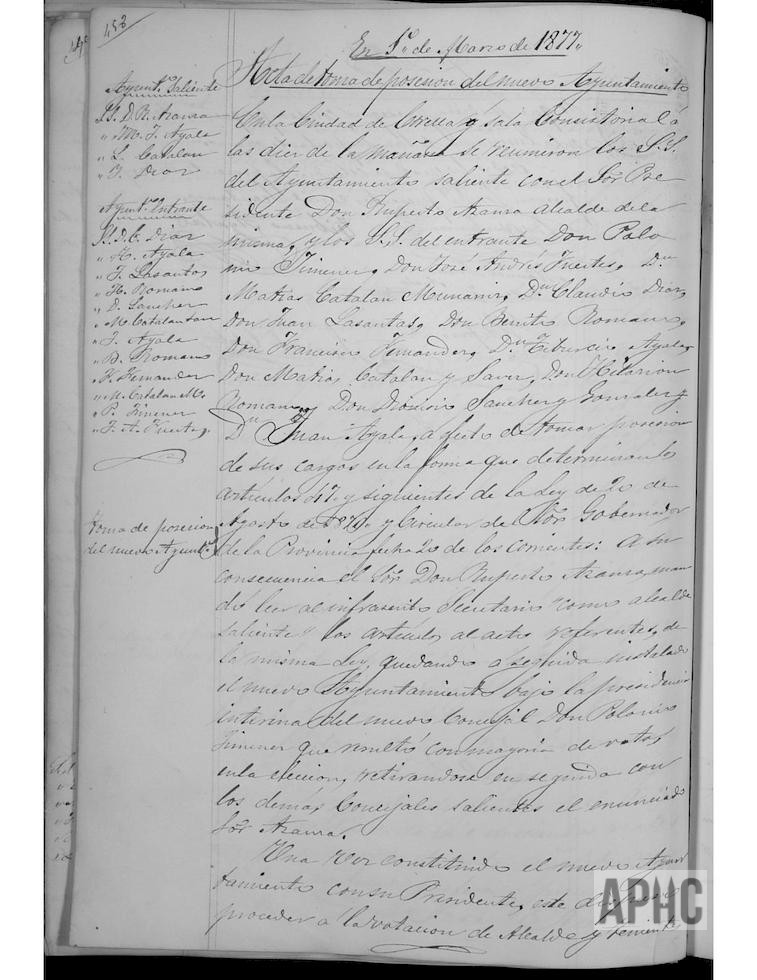 453
En 1º de Marzo de 1877„
Acta de toma de posesion del nuevo Ayuntamiento
Ayuntº Saliente
S.S. D. R. Azanza
„ M. J. Ayala
„ L. Catalan
„ J. Diaz
Ayuntº Entrante
S.S. D. C. Diaz
„ H. Ayala
„ J. Lasantas
„ H. Romano
„ D. Sanchez
„ M. Catalan San
„ J. Ayala
„ B. Romano
„ F. Fernandez
„ M. Catalan Mo
„ P. Jimenez
„ J. A. Fuertes
toma de posesion
del nuevo Ayuntº
En la Ciudad de Corella y sala Consistorial á
las diez de la mañana se reunieron los S.S.
del Ayuntamiento saliente con el Sõr Pre
sidente Don Ruperto Azanza Alcalde de la
misma, y los S.S. del entrante Don Polo
nio Jimenez, Don José Andrés Fuertes, Dn
Matias Catalan Munarriz, Dn Claudio Diaz,
Don Juan Lasantas, Don Benito Romano,
Don Francisco Fernandez, Dn Tiburcio Ayala,
Don Matias Catalan y Sanz, Don Hilarion
Romano, Don Dionisio Sanchez y Gonzalez y
Dn Juan Ayala, a fecto de tomar posesion
de sus cargos en la forma que determinan los
artículos 47 y siguientes de la Ley de 20 de
Agosto de 1870, y Circular del Sõr Gobernador
de la Provincia fecha 20 de los corrientes: A su
consecuencia el Sõr Don Ruperto Azanza, man
dó leer al infrascrito Secretario "como alcalde
saliente" los artículos al acto referentes, de
la misma Ley, quedando a seguida instalado
el nuevo Ayuntamiento bajo la presidencia
interina del nuevo Concejal Don Polonio
Jimenez que resultó con mayoria de votos
en la eleccion, retirandose en seguida con
los demás Concejales salientes el enunciado
Sõr Azanza.
Una vez constituido el nuevo Ayun
tamiento con su Presidente, este dispuso
proceder a la votacion de Alcalde y teniente
APHC